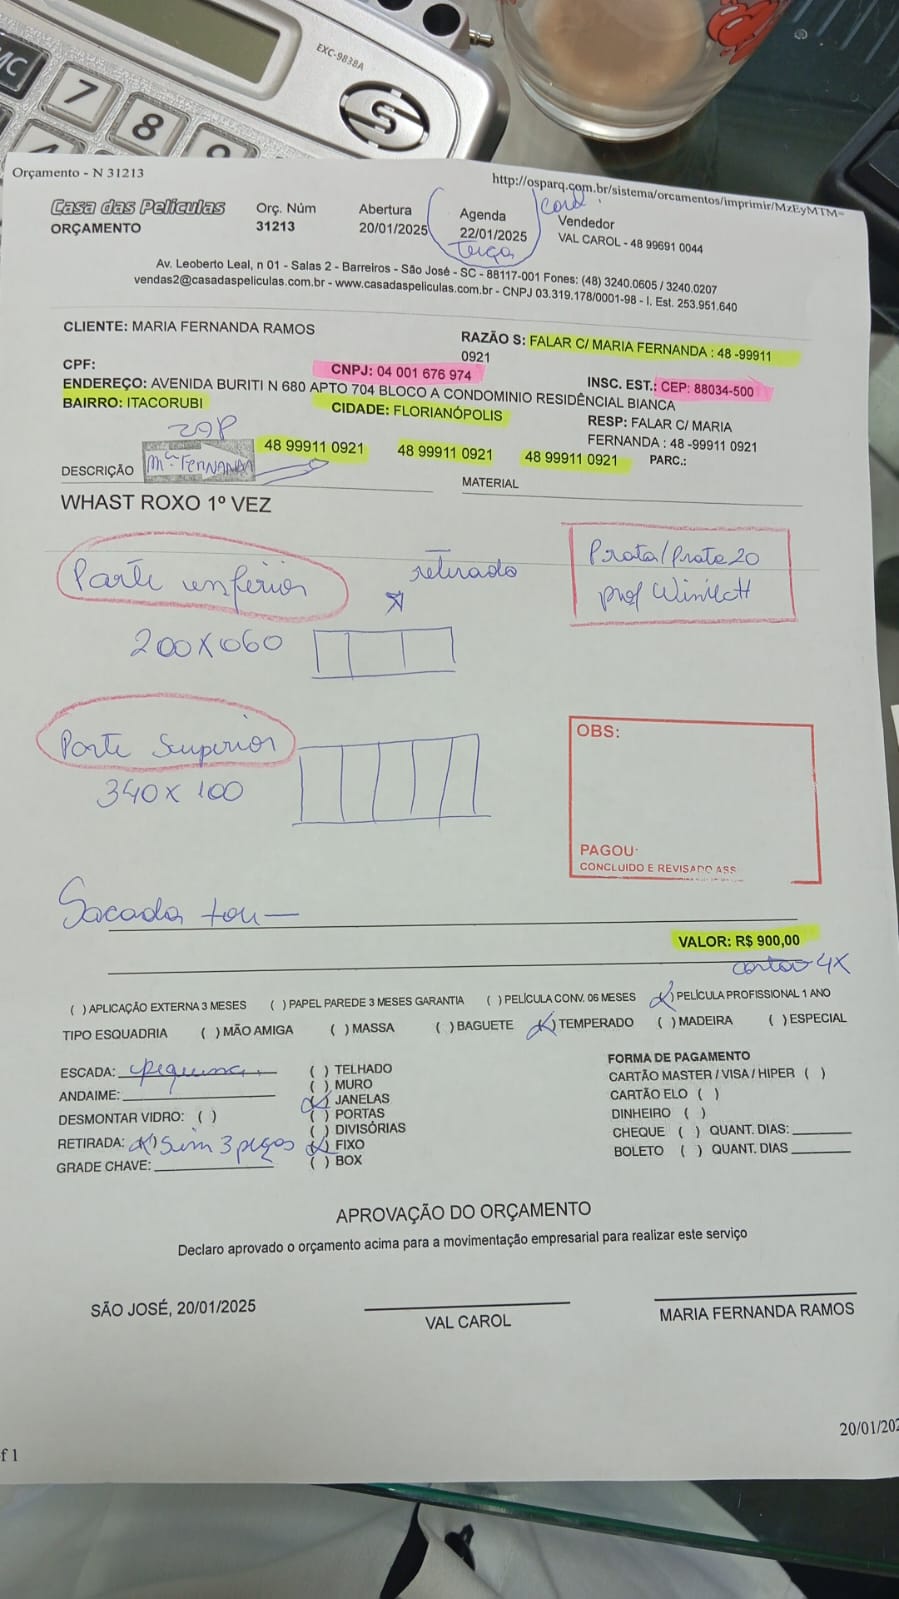 EXC-9838A
MC
7
8
9
Orçamento - N 31213
http://osparq.com.br/sistema/orcamentos/imprimir/MzEyMTM=
Casa das Películas
ORÇAMENTO
Orç. Núm
31213
Abertura
20/01/2025
Agenda
22/01/2025
Terça
Carol
Vendedor
VAL CAROL - 48 99691 0044
Av. Leoberto Leal, n 01 - Salas 2 - Barreiros - São José - SC - 88117-001 Fones: (48) 3240.0605 / 3240.0207
vendas2@casadaspeliculas.com.br - www.casadaspeliculas.com.br - CNPJ 03.319.178/0001-98 - I. Est. 253.951.640
CLIENTE: MARIA FERNANDA RAMOS
RAZÃO S: FALAR C/ MARIA FERNANDA : 48 -99911
0921
CPF:
CNPJ: 04 001 676 974
INSC. EST.: CEP: 88034-500
ENDEREÇO: AVENIDA BURITI N 680 APTO 704 BLOCO A CONDOMINIO RESIDÊNCIAL BIANCA
BAIRRO: ITACORUBI
CIDADE: FLORIANÓPOLIS
RESP: FALAR C/ MARIA
FERNANDA : 48 -99911 0921
ZAP
48 99911 0921
48 99911 0921
48 99911 0921
PARC.:
DESCRIÇÃO
Mª FERNANDA
MATERIAL
WHAST ROXO 1º VEZ
Parte inferior
retirado
Prata/prata 20
prof
200X060
Parte Superior
340X100
OBS:
PAGOU:
CONCLUIDO E REVISADO ASS
Sacada
VALOR: R$ 900,00
cartão 4X
( ) APLICAÇÃO EXTERNA 3 MESES ( ) PAPEL PAREDE 3 MESES GARANTIA ( ) PELÍCULA CONV. 06 MESES (X) PELÍCULA PROFISSIONAL 1 ANO
TIPO ESQUADRIA ( ) MÃO AMIGA ( ) MASSA ( ) BAGUETE (X) TEMPERADO ( ) MADEIRA ( ) ESPECIAL
ESCADA: pequena
ANDAIME:
DESMONTAR VIDRO: ( )
RETIRADA: (X) Sim 3 peças
GRADE CHAVE:
( ) TELHADO
( ) MURO
(X) JANELAS
( ) PORTAS
( ) DIVISÓRIAS
(X) FIXO
( ) BOX
FORMA DE PAGAMENTO
CARTÃO MASTER / VISA / HIPER ( )
CARTÃO ELO ( )
DINHEIRO ( )
CHEQUE ( ) QUANT. DIAS:
BOLETO ( ) QUANT. DIAS
APROVAÇÃO DO ORÇAMENTO
Declaro aprovado o orçamento acima para a movimentação empresarial para realizar este serviço
SÃO JOSÉ, 20/01/2025
VAL CAROL
MARIA FERNANDA RAMOS
20/01/202
f 1